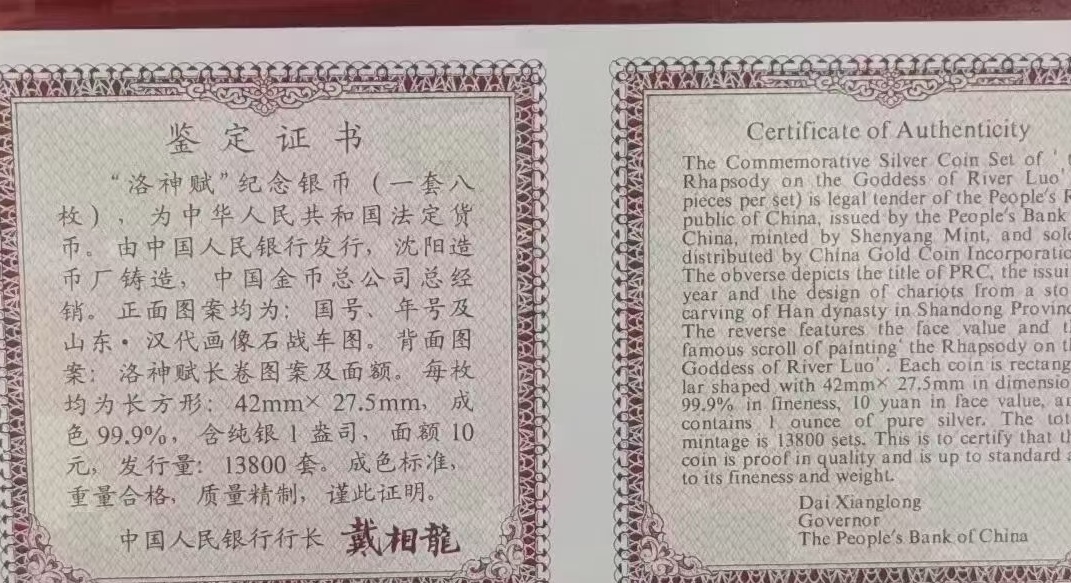 鉴定证书
“洛神赋”纪念银币（一套八
枚），为中华人民共和国法定货
币。由中国人民银行发行，沈阳造
币厂铸造，中国金币总公司总经
销。正面图案均为：国号、年号及
山东·汉代画像石战车图。背面图
案：洛神赋长卷图案及面额。每枚
均为长方形：42mm×27.5mm，成
色99.9%，含纯银1盎司，面额10
元，发行量：13800套。成色标准，
重量合格，质量精制，谨此证明。
中国人民银行行长 戴相龍
Certificate of Authenticity
The Commemorative Silver Coin Set of '
Rhapsody on the Goddess of River Luo'
pieces per set) is legal tender of the People's R
public of China, issued by the People's Bank
China, minted by Shenyang Mint, and sole
distributed by China Gold Coin Incorporatio
The obverse depicts the title of PRC, the issui
year and the design of chariots from a sto
carving of Han dynasty in Shandong Provinc
The reverse features the face value and t
famous scroll of painting' the Rhapsody on t
Goddess of River Luo'. Each coin is rectang
lar shaped with 42mm× 27.5mm in dimensio
99.9% in fineness, 10 yuan in face value, a
contains 1 ounce of pure silver. The tot
mintage is 13800 sets. This is to certify that t
coin is proof in quality and is up to standard a
to its fineness and weight.
Dai Xianglong
Governor
The People's Bank of China